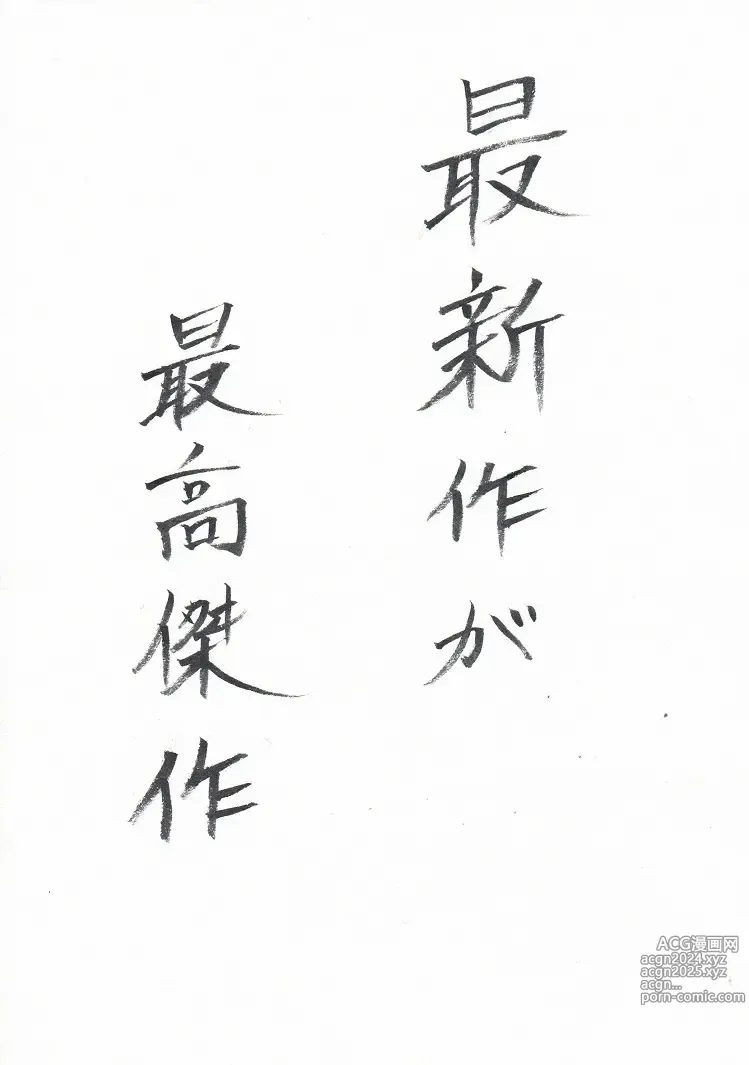 最新作が
最高傑作
ACG漫画网
acgn2024.xyz
acgn2025.xyz
acgn...
porn-comic.com